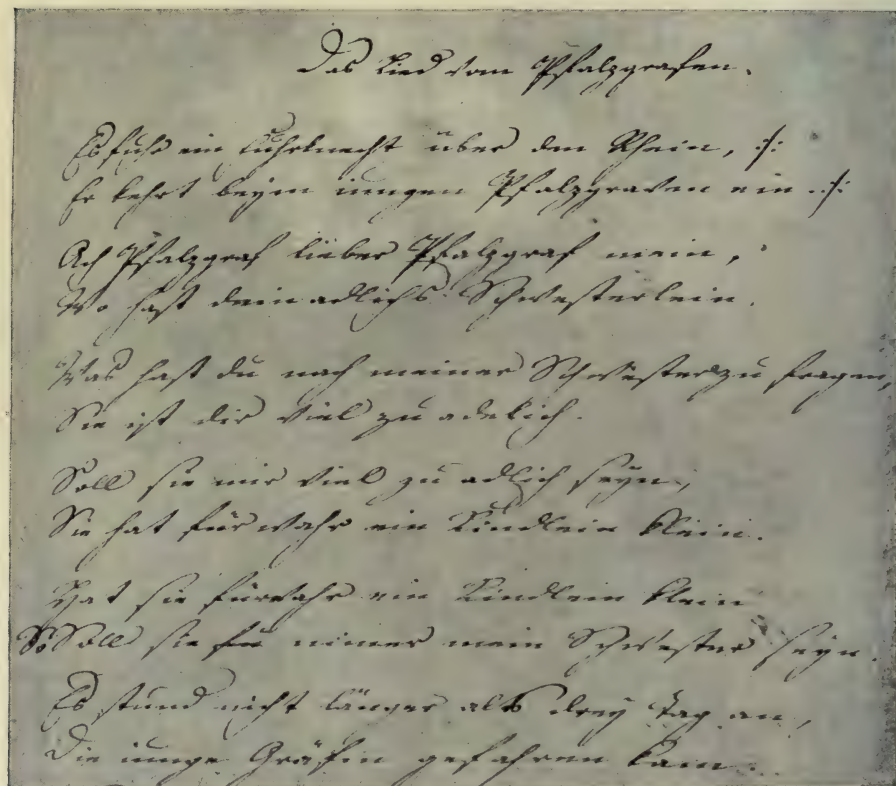 Das Lied vom Pfalzgrafen.
Es fuhr ein Fuhrknecht über den Rhein, :/:
Er kehrt beym iungen Pfalzgraven ein. :/:
Ach Pfalzgraf lieber Pfalzgraf mein,
Wo hast dein adlichs Schwesterlein.
Was hast du nach meiner Schwester zu fragen,
Sie ist dir viel zu adelich.
Soll sie mir viel zu adlich seyn,
Sie hat fürwahr ein Kindlein klein.
Hat sie fürwahr ein Kindlein klein
So Soll sie nimer mein Schwester seyn.
Es stund nicht länger als drey Tag an,
Die iunge Gräfin gefahren kam.